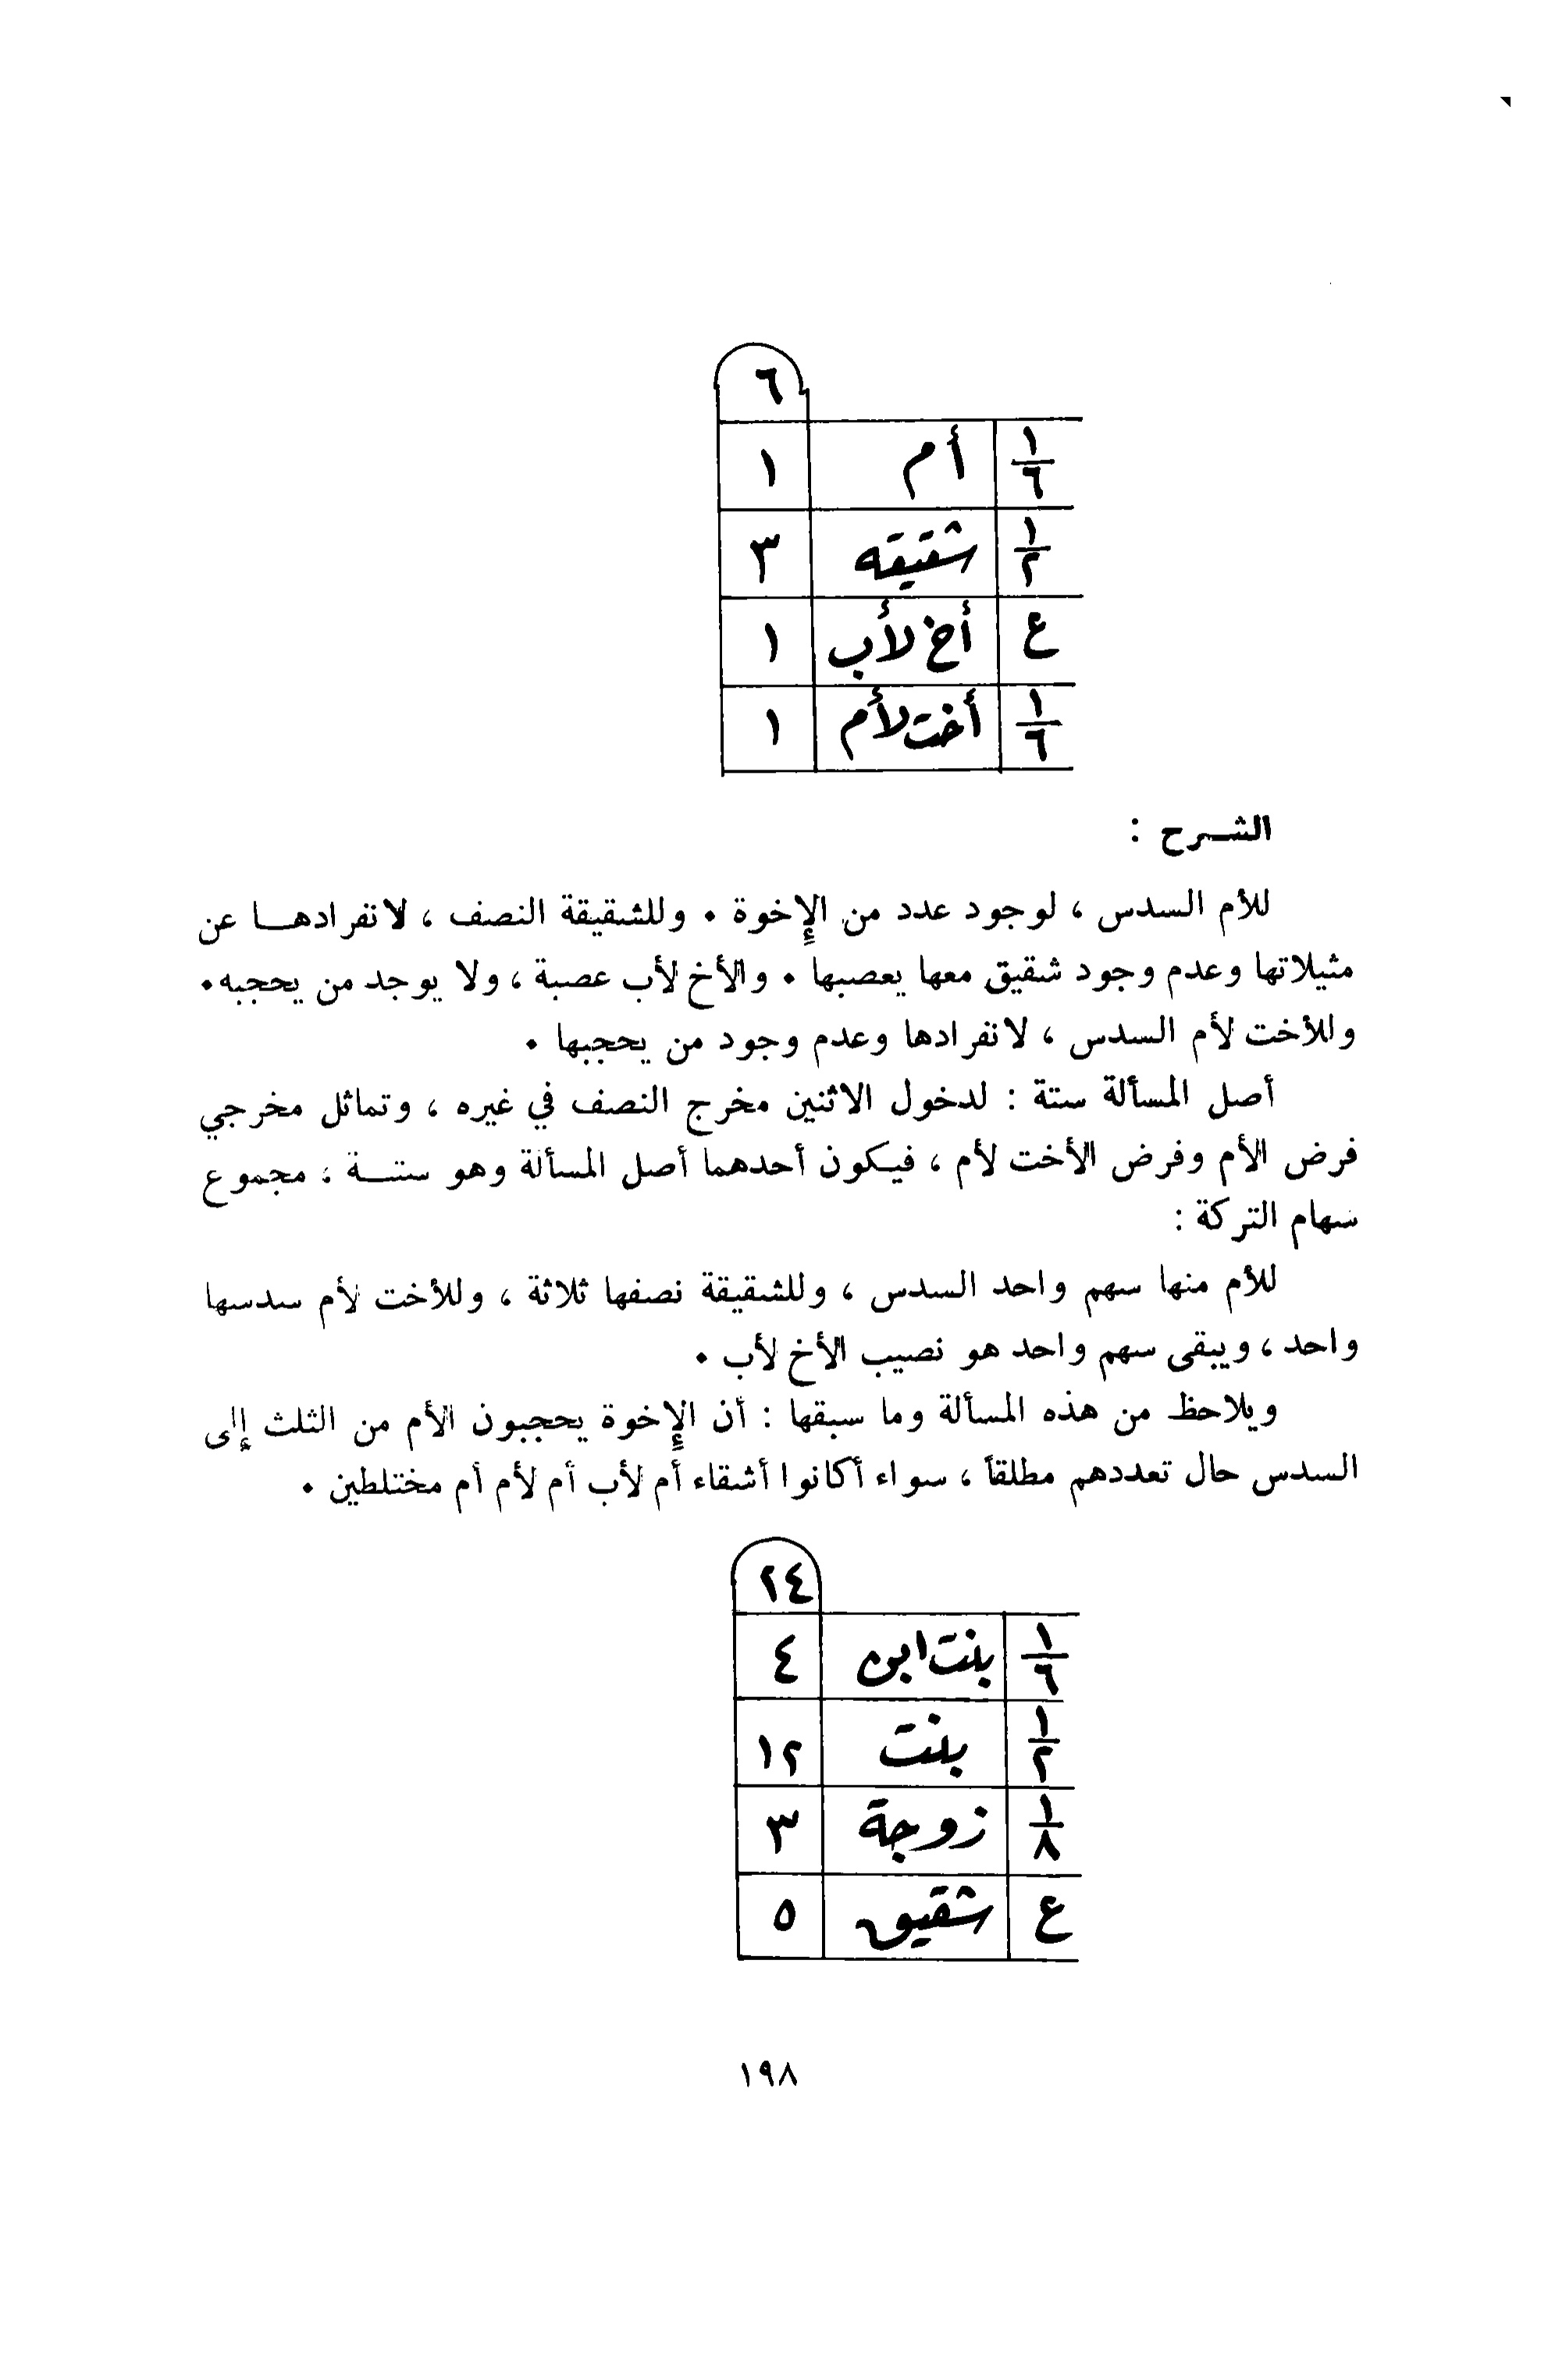 ٦
١/٦ أم ١
١/٢ شقيقه ٣
ع أخ لأب ١
١/٦ أخت لأم ١
الشرح :
للأم السدس ، لوجود عدد من الإخوة . وللشقيقة النصف ، لانفرادها عن
مثيلاتها وعدم وجود شقيق معها يعصبها . والأخ لأب عصبة ، ولا يوجد من يحجبه .
وللأخت لأم السدس ، لانفرادها وعدم وجود من يحجبها .
أصل المسألة ستة : لدخول الاثنين مخرج النصف في غيره ، وتماثل مخرجي
فرض الأم وفرض الأخت لأم ، فيكون أحدهما أصل المسألة وهو ستة ؛ مجموع
سهام التركة :
للأم منها سهم واحد السدس ، وللشقيقة نصفها ثلاثة ، وللأخت لأم سدسها
واحد ، ويبقى سهم واحد هو نصيب الأخ لأب .
ويلاحظ من هذه المسألة وما سبقها : أن الإخوة يحجبون الأم من الثلث إلى
السدس حال تعددهم مطلقاً ، سواء أكانوا أشقاء أم لأب أم لأم أم مختلطين .
٢٤
١/٦ بنت ابن ٤
١/٢ بنت ١٢
١/٨ زوجة ٣
ع شقيق ٥
١٩٨